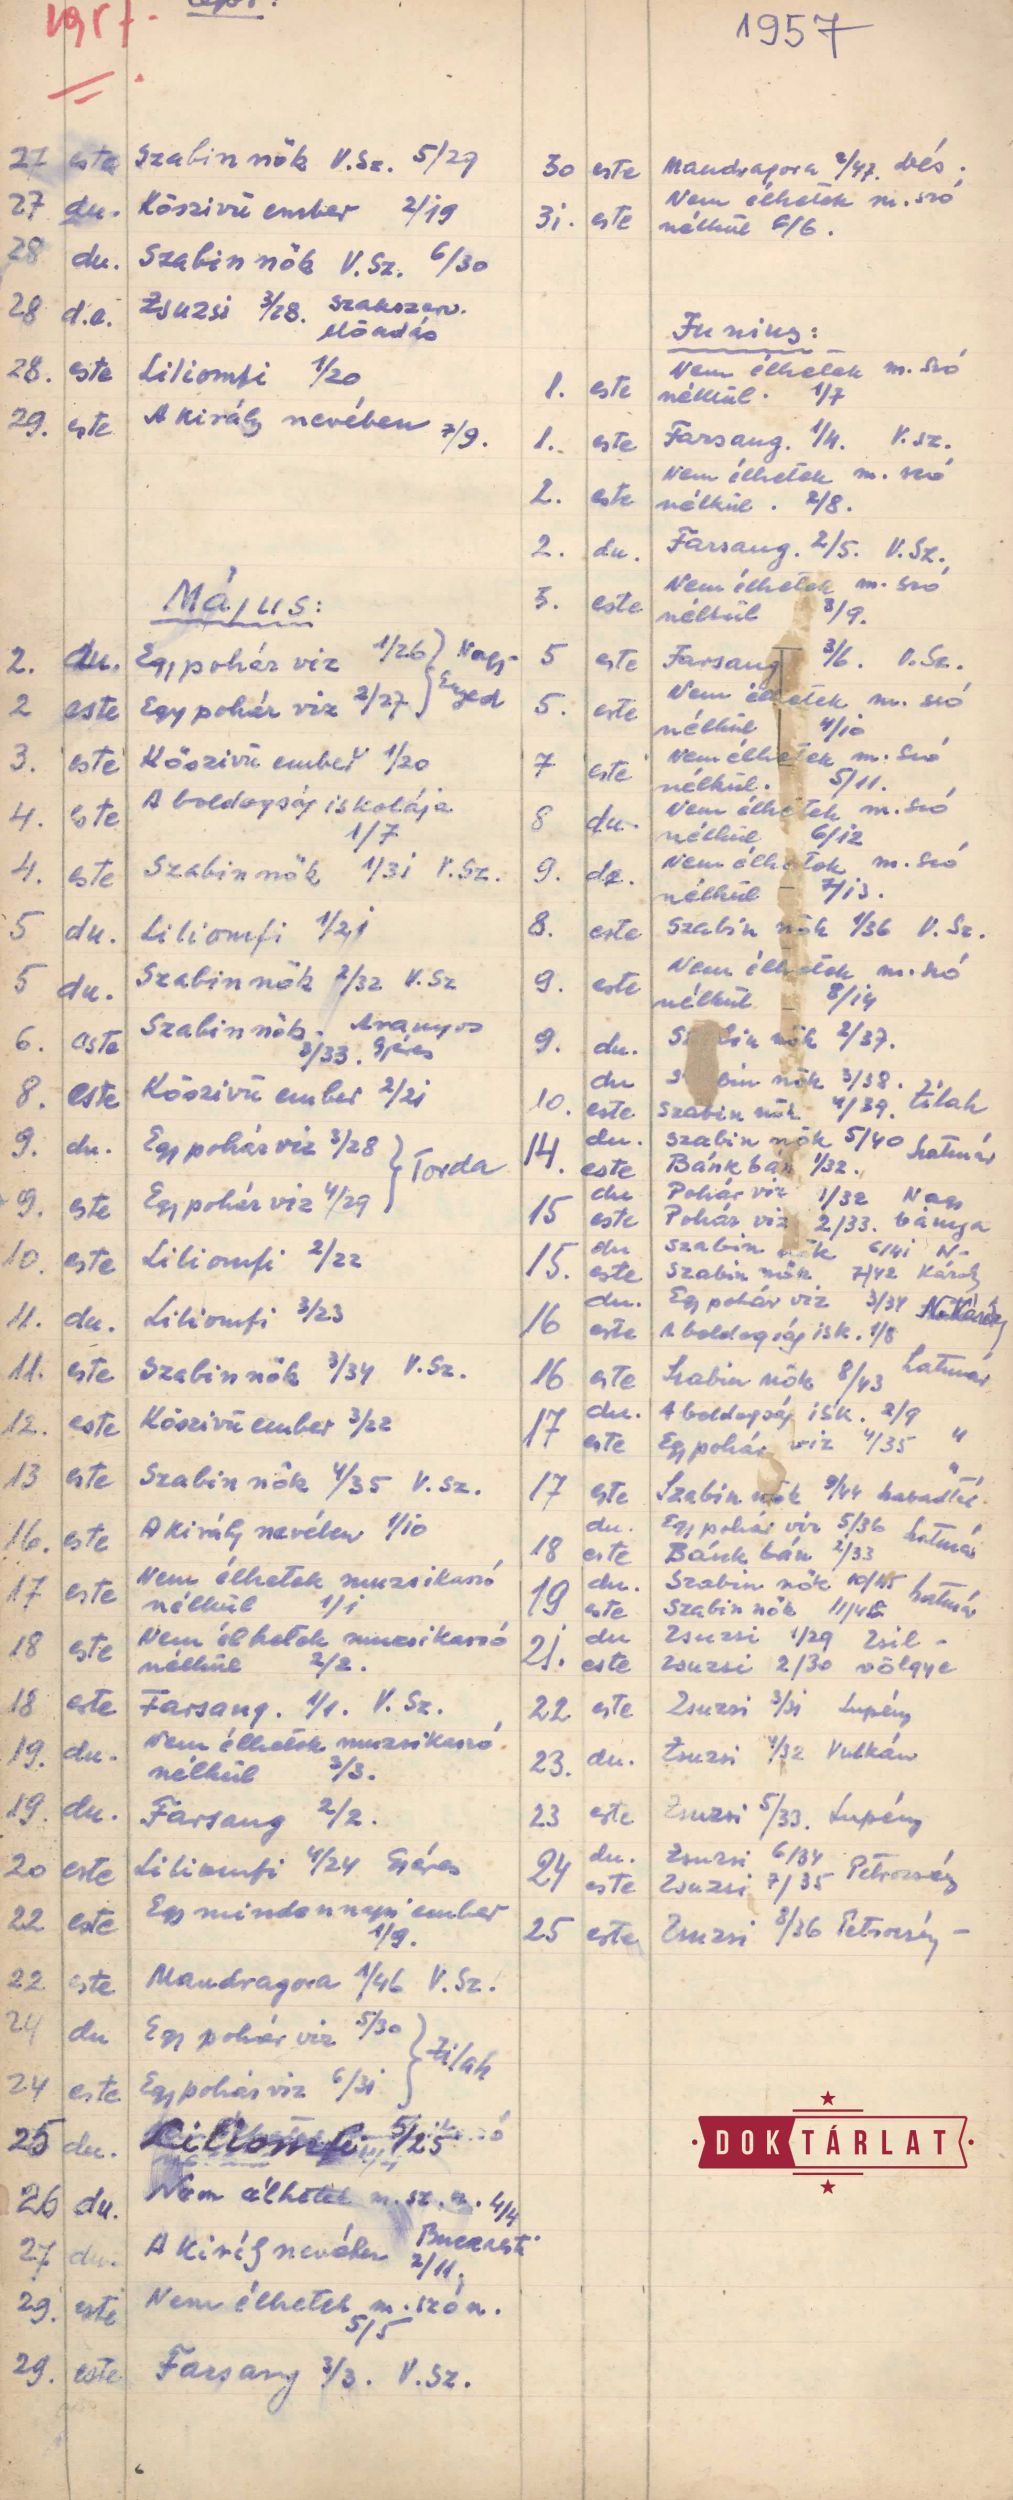 1957.
1957
27 este Szabin nők V.Sz. 5/29
27 du. Kőszivü ember 2/19
28 du. Szabin nők V.Sz. 6/30
28 d.e. Zsuzsi 3/28. szakszerv.
előadás
28. este Liliomfi 1/20
29. este A király nevében 7/9.
Május:
2. du. Egy pohár viz 1/26 Nagy-
2 este Egy pohár viz 2/27 Enyed
3. este Kőszivü ember 1/20
4. este A boldogság iskolája
1/7
4. este Szabin nők 1/31 V.Sz.
5 du. Liliomfi 1/21
5 du. Szabin nők 2/32 V.Sz
6. este Szabin nők. Aranyos
3/33. Gyéres
8. este Kőszivü ember 2/21
9. du. Egy pohár viz 3/28
Torda
9. este Egy pohár viz 4/29
10. este Liliomfi 2/22
11. du. Liliomfi 3/23
11. este Szabin nők 3/34 V.Sz.
12. este Kőszivü ember 3/22
13 este Szabin nők 4/35 V.Sz.
16. este A király nevében 1/10
17 este Nem élhetek muzsikaszó
nélkül 1/1
18 este Nem élhetek muzsikaszó
nélkül 2/2.
18 este Farsang. 1/1. V.Sz.
19. du. Nem élhetek muzsikaszó
nélkül 3/3.
19. du. Farsang 2/2.
20 este Liliomfi 4/24 Gyéres
22 este Egy mindennapi ember
1/9.
22 este Mandragora 1/46 V.Sz.
24 du Egy pohár viz 5/30
Zilah
24 este Egy pohár viz 6/31
25 du. Liliomfi 5/25
26 du. Nem élhetek m.sz.n. 4/4
27 du. A király nevében Bucuresti
2/11.
29. este Nem élhetek m.szó n.
5/5
29. este Farsang 3/3. V.Sz.
30 este Mandragora 2/47. Dés.
31. este Nem élhetek m.szó
nélkül 6/6.
Junius:
1. este Nem élhetek m.szó
nélkül. 1/7
1. este Farsang. 1/4. V.sz.
2. este Nem élhetek m.szó
nélkül. 2/8.
2. du. Farsang. 2/5. V.Sz.
3. este Nem élhetek m.szó
nélkül 3/9.
5 este Farsang 3/6. V.Sz.
5. este Nem élhetek m.szó
nélkül 4/10
7 este Nem élhetek m.szó
nélkül. 5/11.
8 du. Nem élhetek m.szó
nélkül 6/12
9. de. Nem élhetek m.szó
nélkül 7/13.
8. este Szabin nők 1/36 V.Sz.
9. este Nem élhetek m.szó
nélkül 8/14
9. du. Szabin nők 2/37.
du Szabin nők 3/38. Zilah
10. este Szabin nők 4/39.
14. du. Szabin nők 5/40 Szatmár
este Bánk bán 1/32.
15 du Pohár viz 1/32 Nagy
este Pohár viz 2/33. bánya
15. du Szabin nők 6/41 N-
este Szabin nők 7/42 Károly
16 du. Egy pohár viz 3/34 N.Károly
este A boldogság isk. 1/8
16 este Szabin nők 8/43 Szatmár
17 du. A boldogság isk. 2/9
este Egy pohár viz 4/35 "
17 este Szabin nők 9/44 szabadtéri
18 du. Egy pohár viz 5/36 Szatmár
este Bánk bán 2/33
19 du. Szabin nők 10/45 Szatmár
este Szabin nők 11/46
21. du Zsuzsi 1/29 Zsil-
este Zsuzsi 2/30 völgye
22 este Zsuzsi 3/31 Lupény
23. du. Zsuzsi 4/32 Vulkán
23 este Zsuzsi 5/33. Lupény
24 du. Zsuzsi 6/34 Petrozsény
este Zsuzsi 7/35
25 este Zsuzsi 8/36 Petrozsény -
DOKTÁRLAT